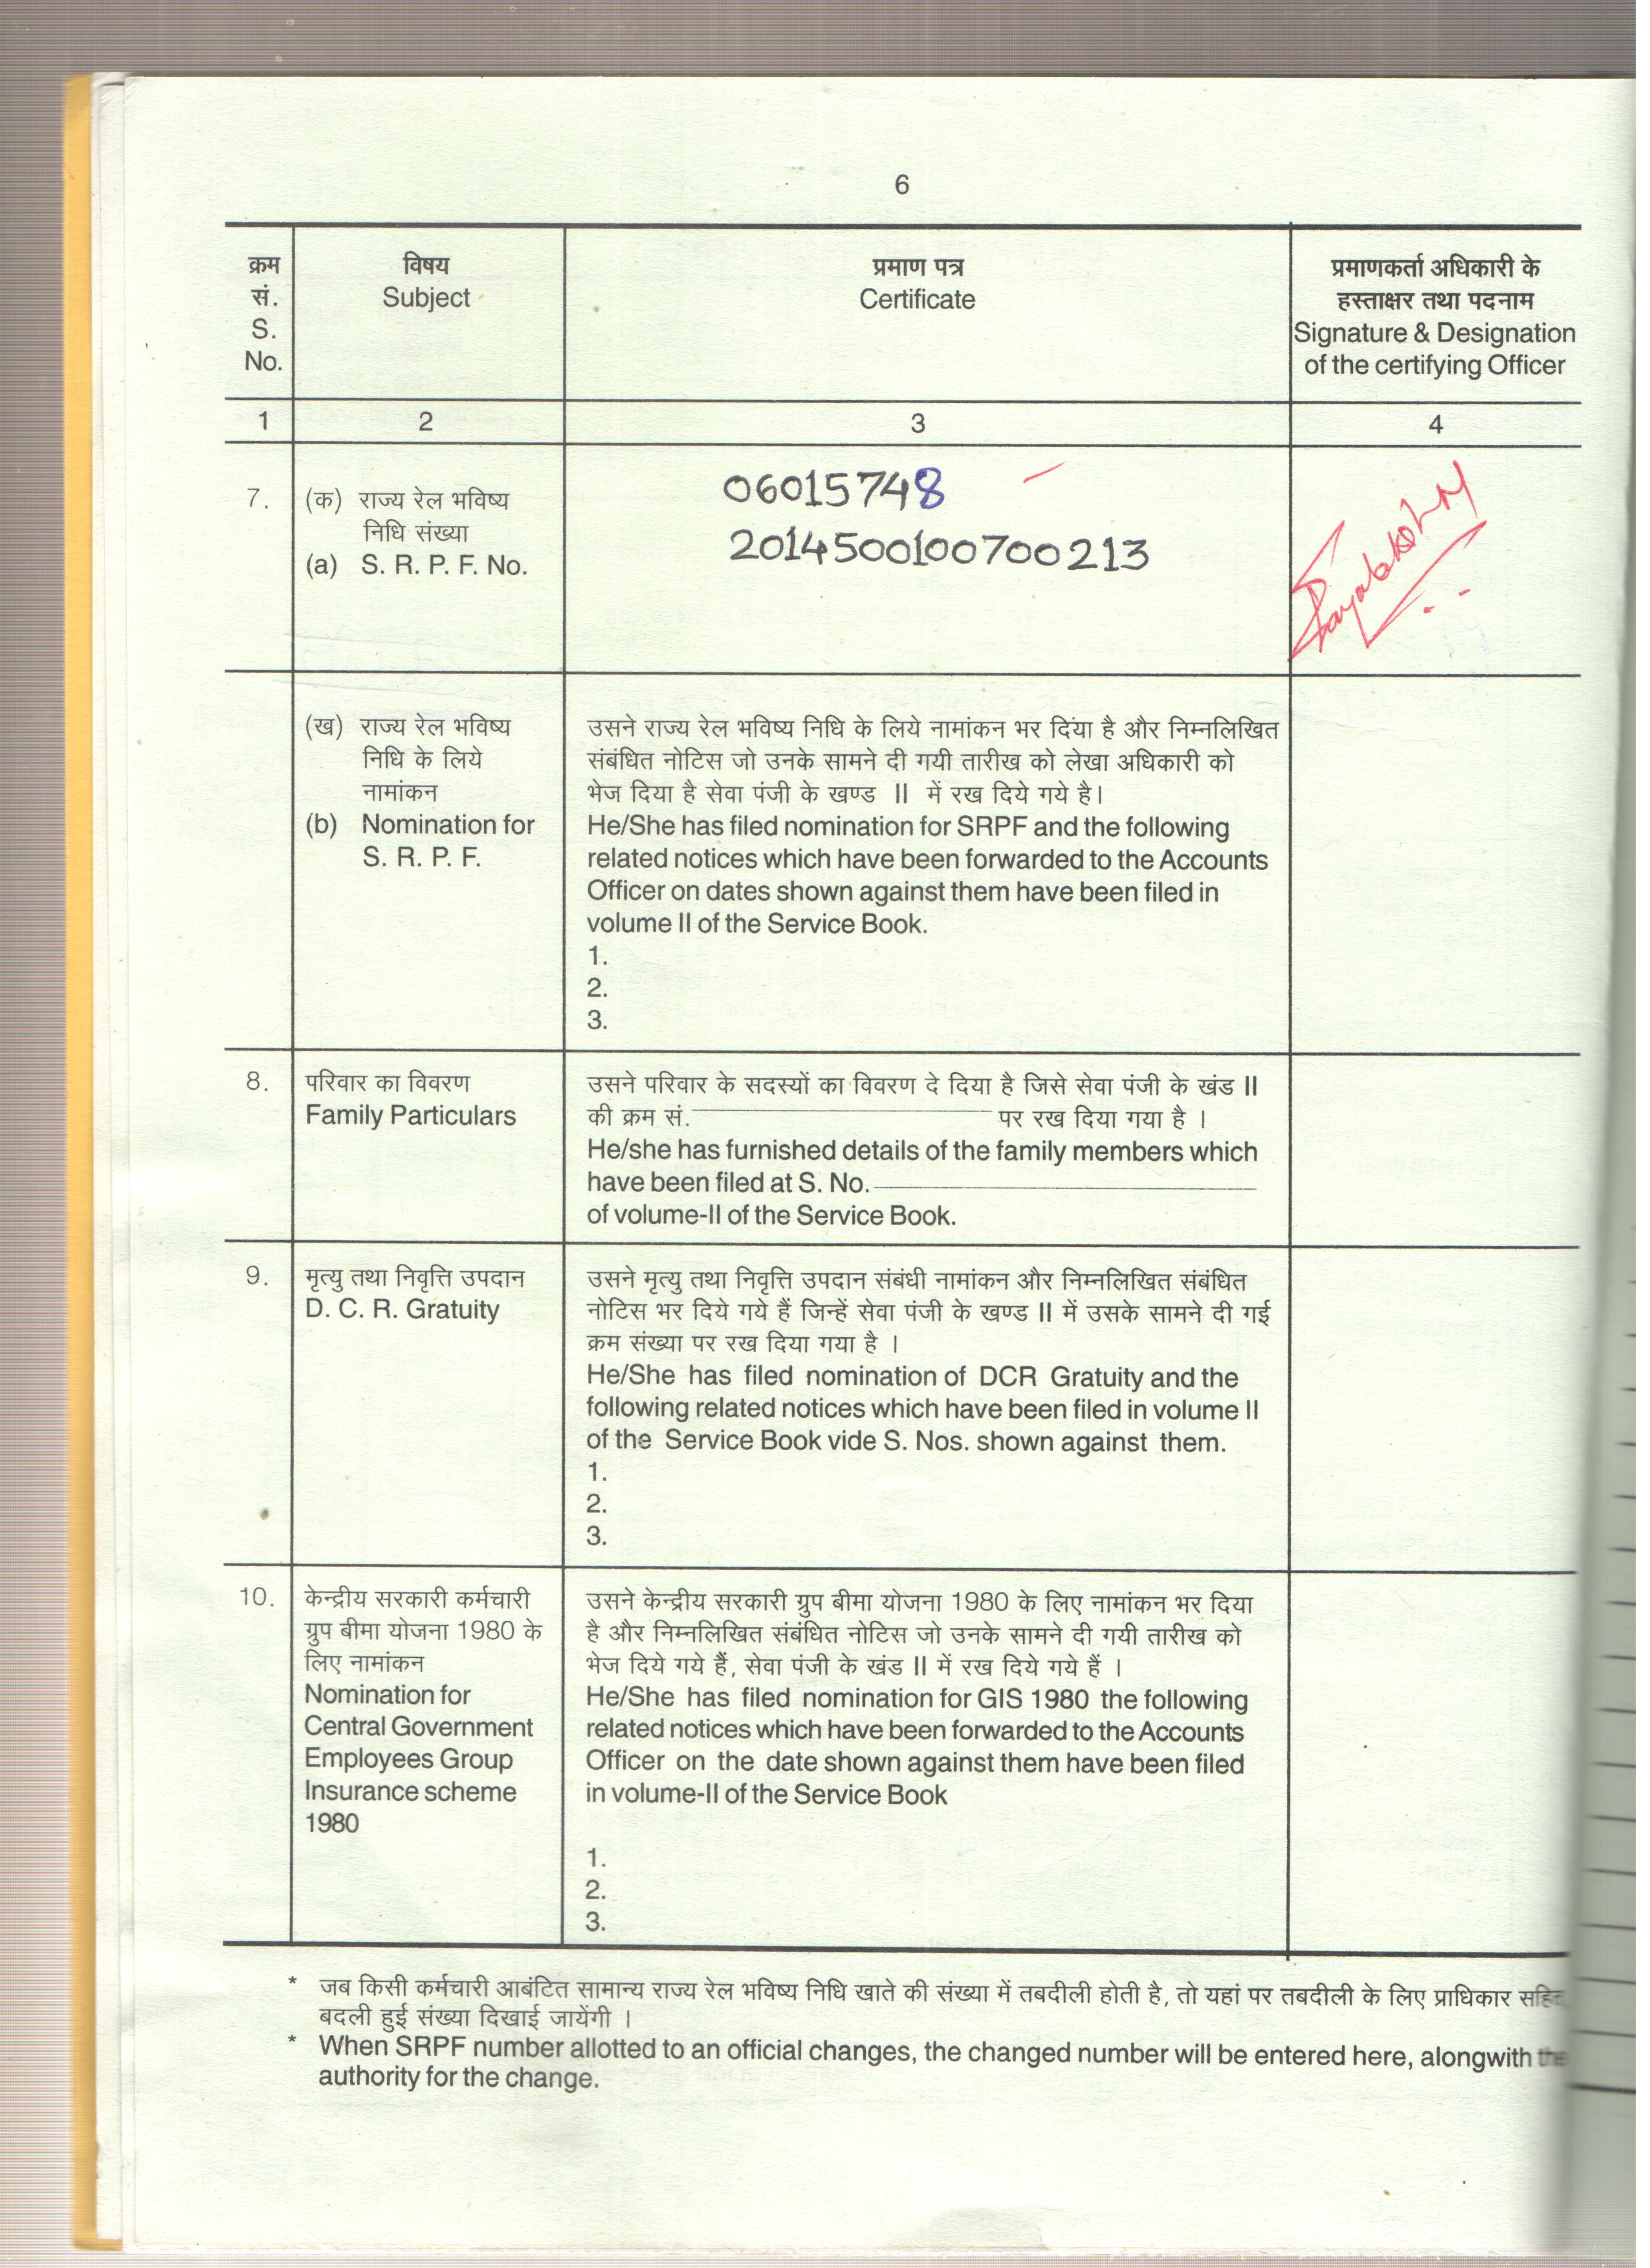 6
क्रम
सं.
S.
No.
विषय
Subject
प्रमाण पत्र
Certificate
प्रमाणकर्ता अधिकारी के
हस्ताक्षर तथा पदनाम
Signature & Designation
of the certifying Officer
1
2
3
4
7.
(क) राज्य रेल भविष्य
निधि संख्या
(a) S. R. P. F. No.
06015748
2014500100700213
(ख) राज्य रेल भविष्य
निधि के लिये
नामांकन
(b) Nomination for
S. R. P. F.
उसने राज्य रेल भविष्य निधि के लिये नामांकन भर दिया है और निम्नलिखित
संबंधित नोटिस जो उनके सामने दी गयी तारीख को लेखा अधिकारी को
भेज दिया है सेवा पंजी के खण्ड II में रख दिये गये है।
He/She has filed nomination for SRPF and the following
related notices which have been forwarded to the Accounts
Officer on dates shown against them have been filed in
volume II of the Service Book.
1.
2.
3.
8.
परिवार का विवरण
Family Particulars
उसने परिवार के सदस्यों का विवरण दे दिया है जिसे सेवा पंजी के खंड II
की क्रम सं. पर रख दिया गया है ।
He/she has furnished details of the family members which
have been filed at S. No.
of volume-II of the Service Book.
9.
मृत्यु तथा निवृत्ति उपदान
D. C. R. Gratuity
उसने मृत्यु तथा निवृत्ति उपदान संबंधी नामांकन और निम्नलिखित संबंधित
नोटिस भर दिये गये हैं जिन्हें सेवा पंजी के खण्ड II में उसके सामने दी गई
क्रम संख्या पर रख दिया गया है ।
He/She has filed nomination of DCR Gratuity and the
following related notices which have been filed in volume II
of the Service Book vide S. Nos. shown against them.
1.
2.
3.
10.
केन्द्रीय सरकारी कर्मचारी
ग्रुप बीमा योजना 1980 के
लिए नामांकन
Nomination for
Central Government
Employees Group
Insurance scheme
1980
उसने केन्द्रीय सरकारी ग्रुप बीमा योजना 1980 के लिए नामांकन भर दिया
है और निम्नलिखित संबंधित नोटिस जो उनके सामने दी गयी तारीख को
भेज दिये गये हैं, सेवा पंजी के खंड II में रख दिये गये हैं ।
He/She has filed nomination for GIS 1980 the following
related notices which have been forwarded to the Accounts
Officer on the date shown against them have been filed
in volume-II of the Service Book
1.
2.
3.
* जब किसी कर्मचारी आबंटित सामान्य राज्य रेल भविष्य निधि खाते की संख्या में तबदीली होती है, तो यहां पर तबदीली के लिए प्राधिकार सहित
बदली हुई संख्या दिखाई जायेंगी ।
* When SRPF number allotted to an official changes, the changed number will be entered here, alongwith the
authority for the change.